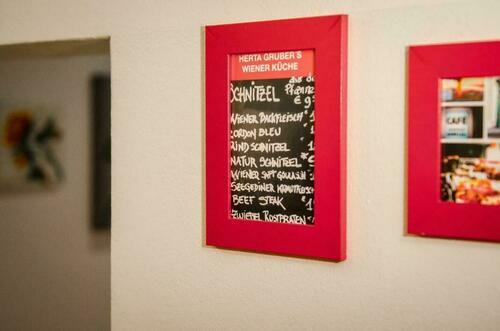 HERTA GRUBER'S
WIENER KÜCHE
SCHNITZEL aus der Pfanne
€ 9
WIENER BACKFLEISCH
CORDON BLEU
RIND SCHNITZEL
NATUR SCHNITZEL
WIENER SAFT GOULASCH
SZEGEDINER KRAUTFLEISCH
BEEF STEAK
ZWIEBEL ROSTBRATEN
CAFÉ